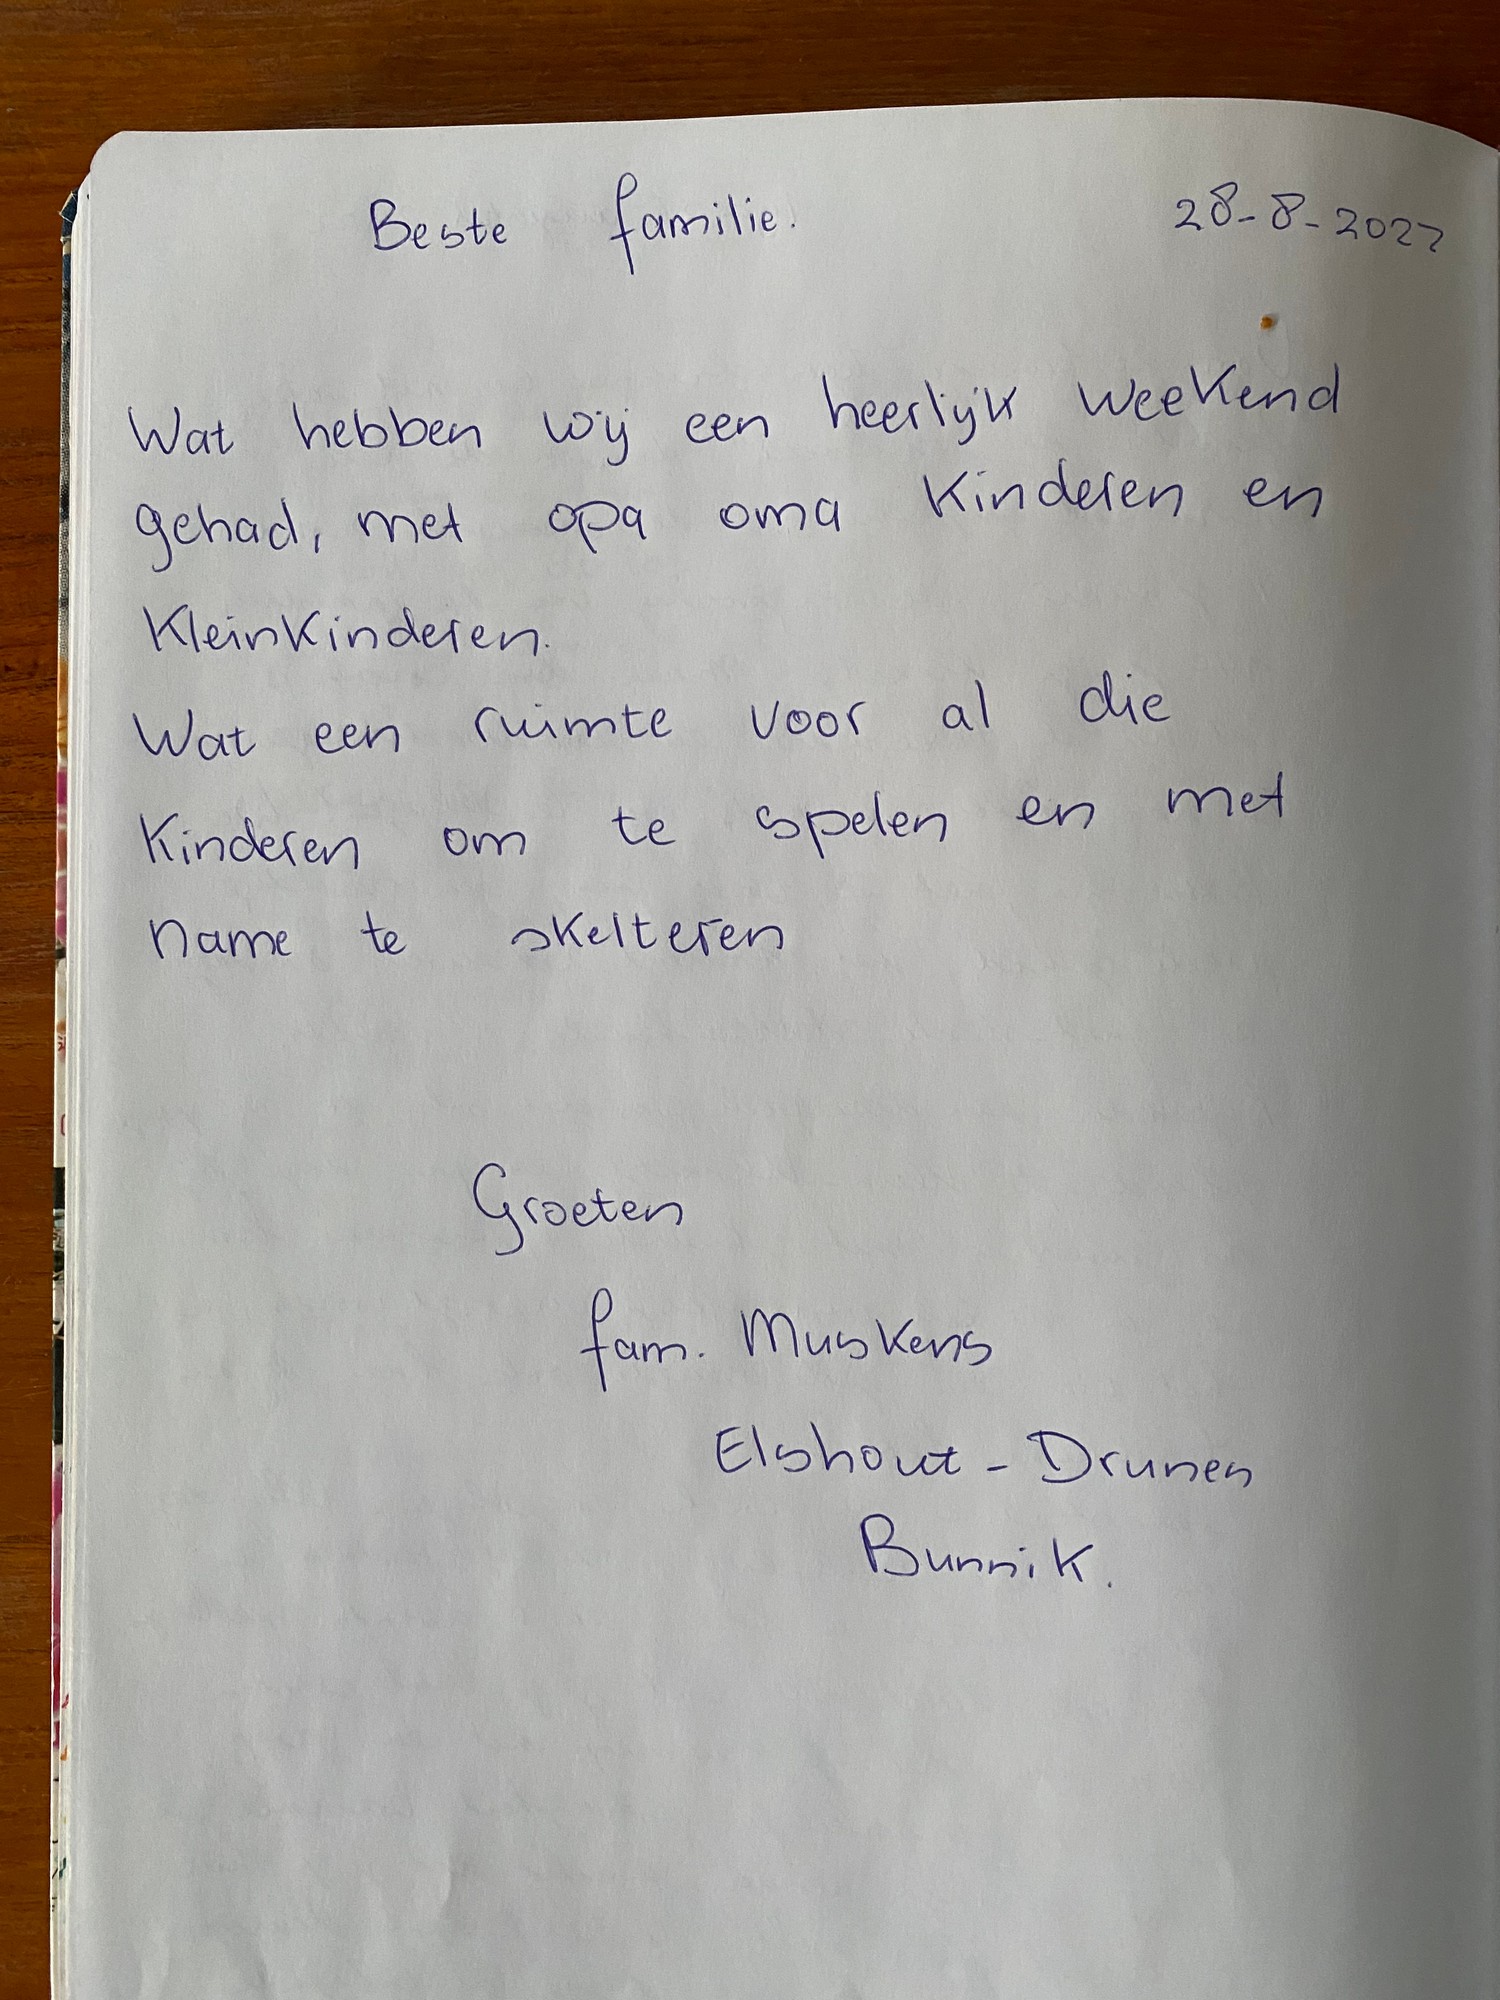 Beste familie! 28-8-2022
Wat hebben wij een heerlijk weekend
gehad, met opa oma kinderen en
kleinkinderen.
Wat een ruimte voor al die
kinderen om te spelen en met
name te skelteren
Groeten
fam. Muskens
Elshout - Drunen
Bunnik.